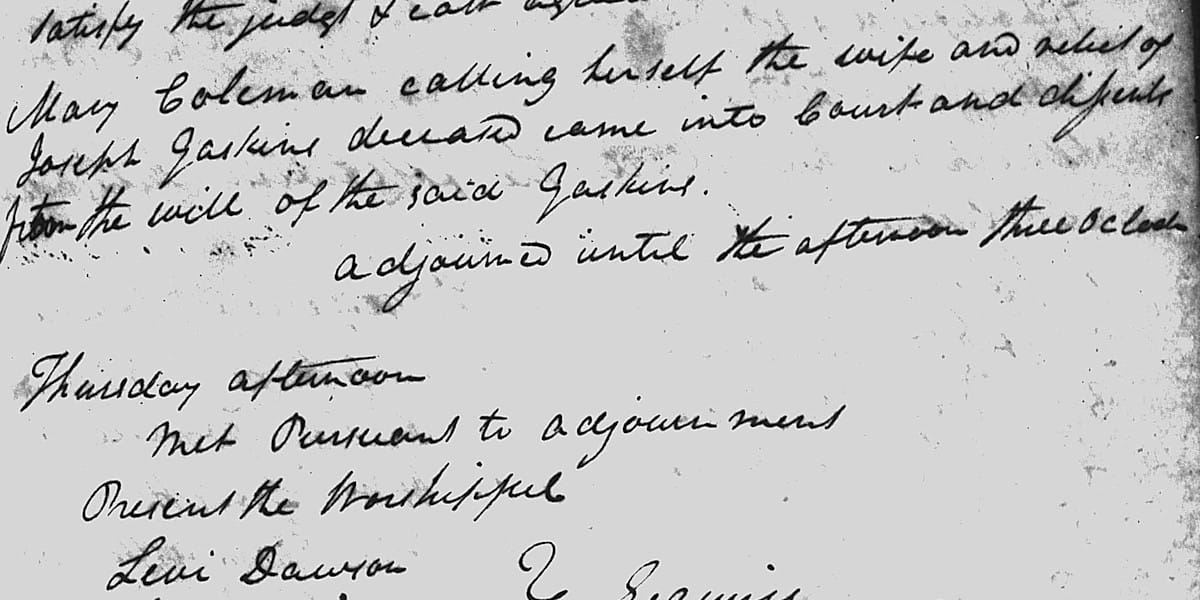 satisfy the judgt & cost
Mary Coleman calling herself the wife and relict of
Joseph Gaskins deceased came into Court and dissents
from the will of the said Gaskins.
adjourned until the afternoon three Oclock
Thursday afternoon
Met Pursuant to adjournment
Present the Worshipful
Levi Dawson
Esquires